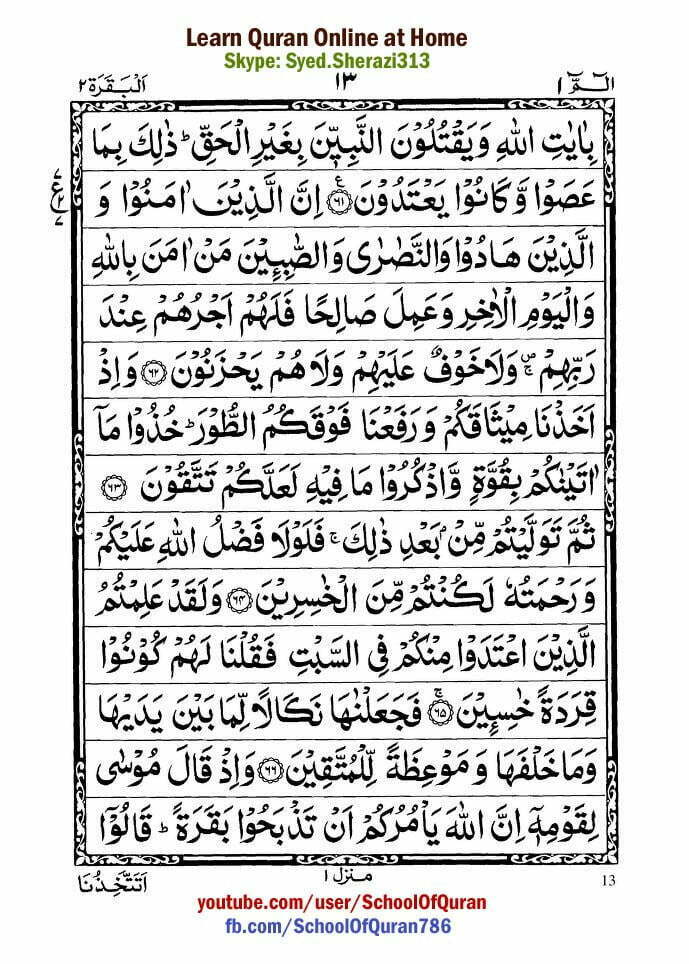 Learn Quran Online at Home
Skype: Syed.Sherazi313
الٓمّٓ ١ ١٣ اَلْبَقَرَة ٢
بِاٰيٰتِ اللّٰهِ وَيَقْتُلُوْنَ النَّبِيّٖنَ بِغَيْرِ الْحَقِّ ؕ ذٰلِكَ بِمَا
عَصَوْا وَّكَانُوْا يَعْتَدُوْنَ ﴿٦١﴾ اِنَّ الَّذِيْنَ اٰمَنُوْا وَ
الَّذِيْنَ هَادُوْا وَالنَّصٰرٰى وَالصّٰبِـِٕيْنَ مَنْ اٰمَنَ بِاللّٰهِ
وَالْيَوْمِ الْاٰخِرِ وَعَمِلَ صَالِحًا فَلَهُمْ اَجْرُهُمْ عِنْدَ
رَبِّهِمْ ۪ۚ وَلَا خَوْفٌ عَلَيْهِمْ وَلَا هُمْ يَحْزَنُوْنَ ﴿٦٢﴾ وَاِذْ
اَخَذْنَا مِيْثَاقَكُمْ وَرَفَعْنَا فَوْقَكُمُ الطُّوْرَ ؕ خُذُوْا مَاۤ
اٰتَيْنٰكُمْ بِقُوَّةٍ وَّاذْكُرُوْا مَا فِيْهِ لَعَلَّكُمْ تَتَّقُوْنَ ﴿٦٣﴾
ثُمَّ تَوَلَّيْتُمْ مِّنْۢ بَعْدِ ذٰلِكَ ۚ فَلَوْلَا فَضْلُ اللّٰهِ عَلَيْكُمْ
وَرَحْمَتُهٗ لَكُنْتُمْ مِّنَ الْخٰسِرِيْنَ ﴿٦٤﴾ وَلَقَدْ عَلِمْتُمُ
الَّذِيْنَ اعْتَدَوْا مِنْكُمْ فِى السَّبْتِ فَقُلْنَا لَهُمْ كُوْنُوْا
قِرَدَةً خٰسِـِٕيْنَ ﴿٦٥﴾ ۚ فَجَعَلْنٰهَا نَكَالًا لِّمَا بَيْنَ يَدَيْهَا
وَمَا خَلْفَهَا وَمَوْعِظَةً لِّلْمُتَّقِيْنَ ﴿٦٦﴾ وَاِذْ قَالَ مُوْسٰى
لِقَوْمِهٖۤ اِنَّ اللّٰهَ يَاْمُرُكُمْ اَنْ تَذْبَحُوْا بَقَرَةً ؕ قَالُوْۤا
13 منزل ١ اَتَتَّخِذُنَا
youtube.com/user/SchoolOfQuran
fb.com/SchoolOfQuran786